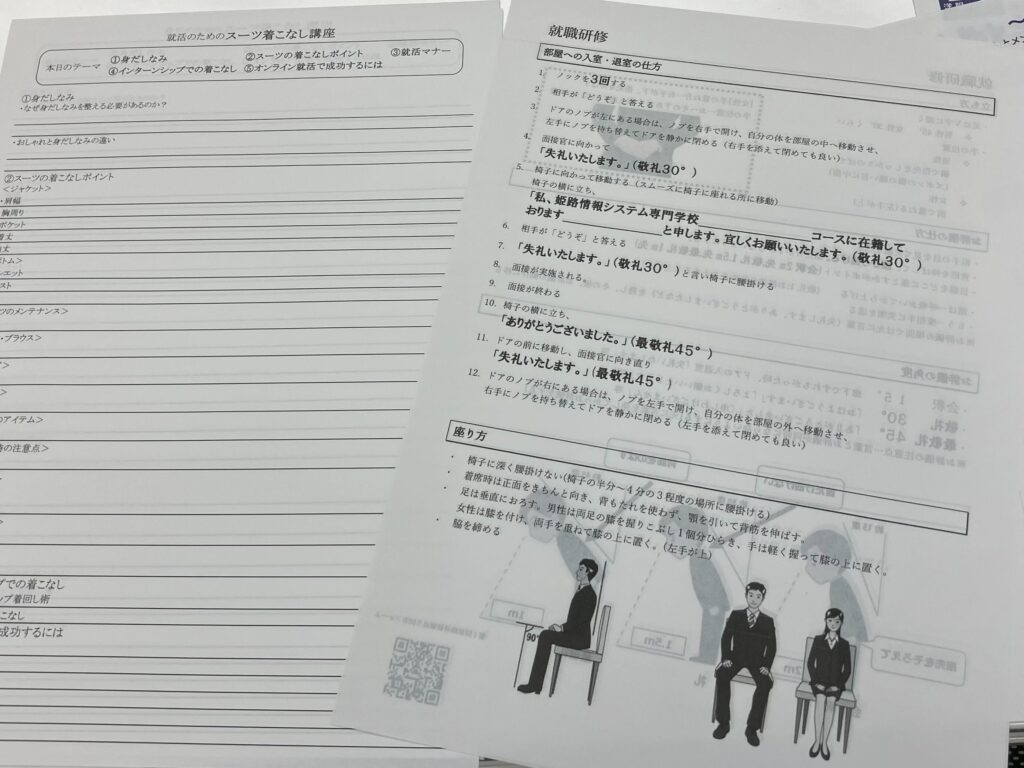 就活のためのスーツ着こなし講座
本日のテーマ
①身だしなみ ②スーツの着こなしポイント ③就活マナー
④インターンシップでの着こなし ⑤オンライン就活で成功するには
①身だしなみ
・なぜ身だしなみを整える必要があるのか？
・おしゃれと身だしなみの違い
②スーツの着こなしポイント
＜ジャケット＞
・肩幅
胸周り
ポケット
着丈
丈
トム＞
エット
スト
ツのメンテナンス＞
・ブラウス＞
＞
＞
のアイテム＞
時の注意点＞
＞
プでの着こなし
ップ着回し術
こなし
成功するには
就職研修
部屋への入室・退室の仕方
1. ノックを3回する
2. 相手が「どうぞ」と答える
3. ドアのノブが左にある場合は、ノブを右手で開け、自分の体を部屋の中へ移動させ、
左手にノブを持ち替えてドアを静かに閉める（右手を添えて閉めても良い）
4. 面接官に向かって
「失礼いたします。」（敬礼30°）
5. 椅子に向かって移動する（スムーズに椅子に座れる所に移動）
椅子の横に立ち、
「私、姫路情報システム専門学校＿＿＿＿＿＿＿＿コースに在籍して
おります＿＿＿＿＿＿＿＿と申します。宜しくお願いいたします。（敬礼30°）
6. 相手が「どうぞ」と答える
7. 「失礼いたします。」（敬礼30°）と言い椅子に腰掛ける
8. 面接が実施される。
9. 面接が終わる
10. 椅子の横に立ち、
「ありがとうございました。」（最敬礼45°）
11. ドアの前に移動し、面接官に向き直り
「失礼いたします。」（最敬礼45°）
12. ドアのノブが右にある場合は、ノブを左手で開け、自分の体を部屋の外へ移動させ、
右手にノブを持ち替えてドアを静かに閉める（左手を添えて閉めても良い）
座り方
・ 椅子に深く腰掛けない（椅子の半分～4分の3程度の場所に腰掛ける）
・ 着席時は正面をきちんと向き、背もたれを使わず、顎を引いて背筋を伸ばす。
・ 足は垂直におろす。男性は両足の膝を握りこぶし1個分ひらき、手は軽く握って膝の上に置く。
女性は膝を付け、両手を重ねて膝の上に置く。（左手が上）
・ 脇を締める
90°